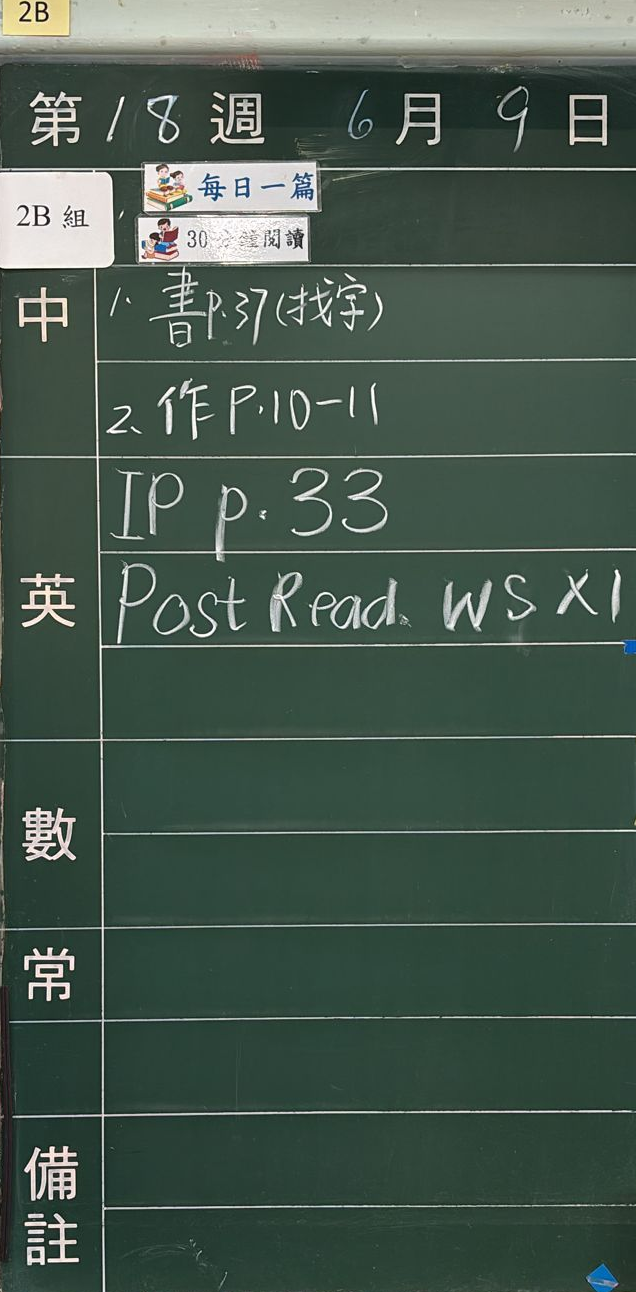 2B
第18週 6月9日
2B 組
每日一篇
30分鐘閱讀
中
1. 書p.37(找字)
2. 作P.10-11
英
IP p.33
Post Read. WS X1
數
常
備註